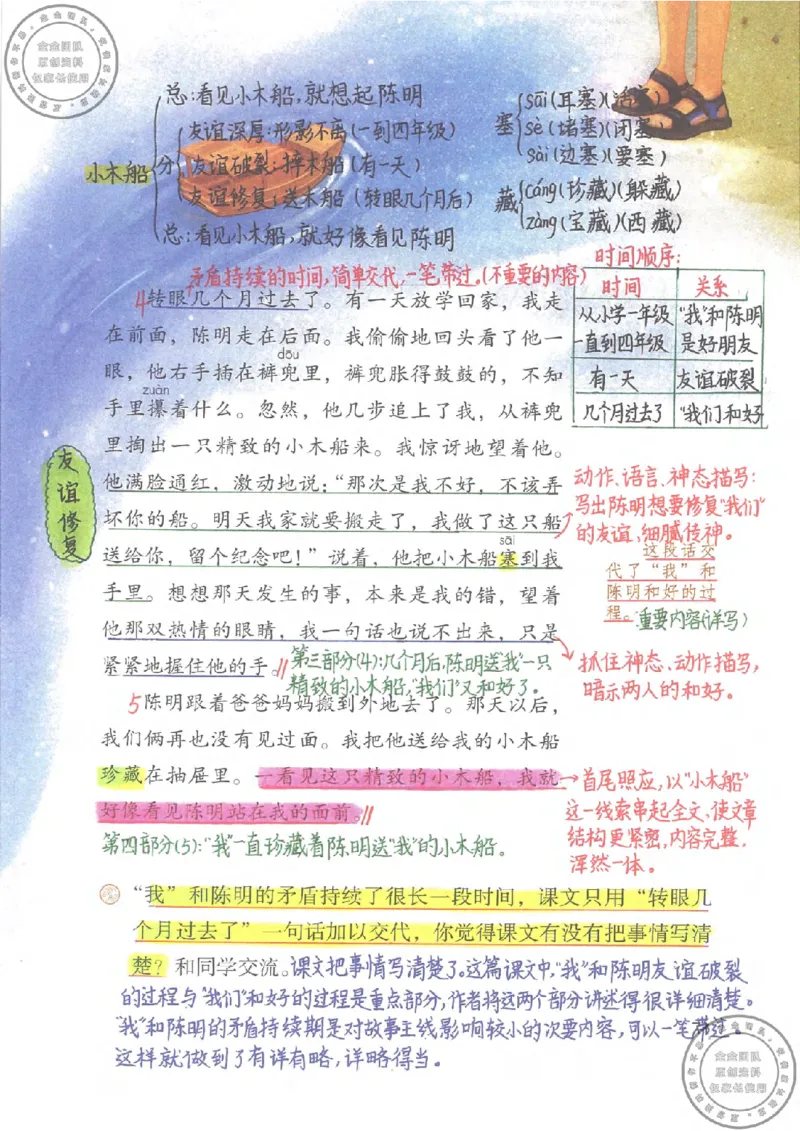 总:看见小木船,就想起陈明
小木船
分
友谊深厚:形影不离(一到四年级)
友谊破裂:摔木船(有一天)
友谊修复:送木船(转眼几个月后)
总:看见小木船,就好像看见陈明
塞
sāi(耳塞)(活塞)
sè(堵塞)(闭塞)
sài(边塞)(要塞)
藏
cáng(珍藏)(躲藏)
zàng(宝藏)(西藏)
时间顺序:
时间 关系
从小学一年级一直到四年级 “我”和陈明是好朋友
有一天 友谊破裂
几个月过去了 “我们”和好
矛盾持续的时间,简单交代,一笔带过。(不重要的内容)
4转眼几个月过去了。有一天放学回家,我走
在前面,陈明走在后面。我偷偷地回头看了他一
dōu
眼,他右手插在裤兜里,裤兜胀得鼓鼓的,不知
zuàn
手里攥着什么。忽然,他几步追上了我,从裤兜
里掏出一只精致的小木船来。我惊讶地望着他。
他满脸通红,激动地说:“那次是我不好,不该弄
坏你的船。明天我家就要搬走了,我做了这只船
sāi
送给你,留个纪念吧!”说着,他把小木船塞到我
手里。想想那天发生的事,本来是我的错,望着
他那双热情的眼睛,我一句话也说不出来,只是
紧紧地握住他的手。
友谊修复
动作、语言、神态描写:
写出陈明想要修复“我们”
的友谊,细腻传神。
这段话交
代了“我”和
陈明和好的过
程。重要内容(详写)
抓住神态、动作描写,
暗示两人的和好。
第三部分(4):几个月后,陈明送“我”一只
精致的小木船,“我们”又和好了。
5陈明跟着爸爸妈妈搬到外地去了。那天以后,
我们俩再也没有见过面。我把他送给我的小木船
珍藏在抽屉里。一看见这只精致的小木船,我就
好像看见陈明站在我的面前。
首尾照应,以“小木船”
这一线索串起全文,使文章
结构更紧密,内容完整,
浑然一体。
第四部分(5):“我”一直珍藏着陈明送“我”的小木船。
“我”和陈明的矛盾持续了很长一段时间,课文只用“转眼几
个月过去了”一句话加以交代,你觉得课文有没有把事情写清
楚?和同学交流。课文把事情写清楚了。这篇课文中,“我”和陈明友谊破裂
的过程与“我们”和好的过程是重点部分,作者将这两个部分讲述得很详细清楚。
“我”和陈明的矛盾持续期是对故事主线影响较小的次要内容,可以一笔带过。
这样就做到了有详有略,详略得当。